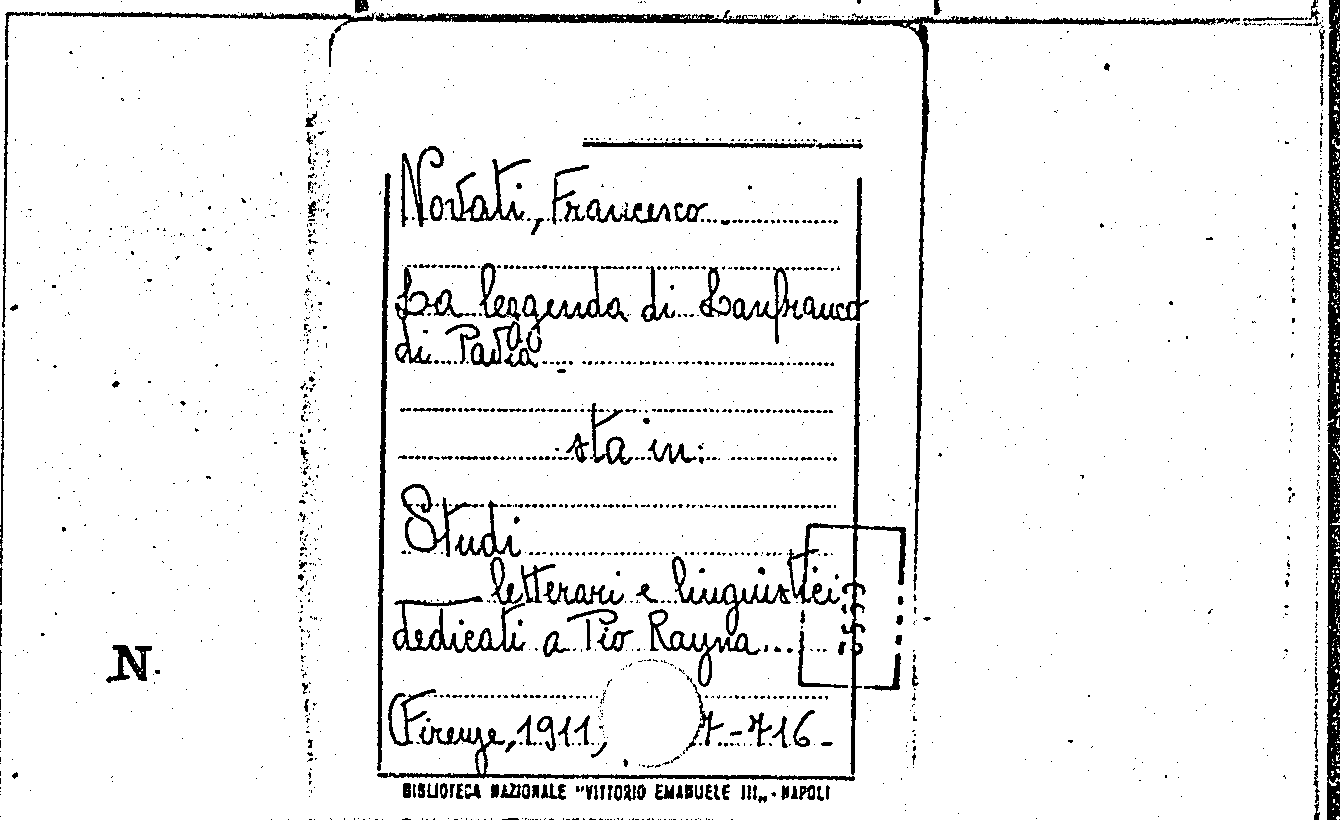 Novati, Francesco.
La leggenda di Lanfranco
di Pavia.
sta in:
Studi
letterari e linguistici
dedicati a Pio Rayna...
(Firenze, 1911, 7-716.
N.
BIBLIOTECA NAZIONALE "VITTORIO EMANUELE III„ - NAPOLI